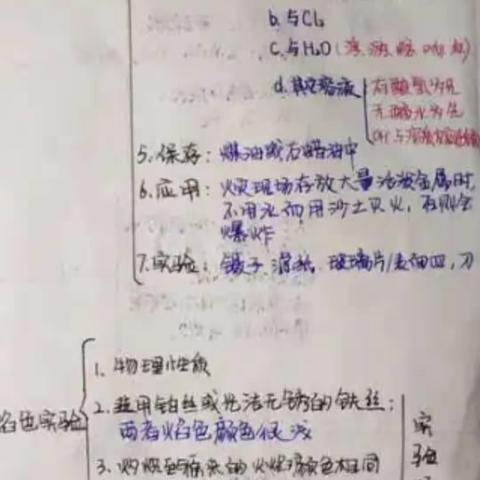 b.与Cl₂
c.与H₂O(浮、游、熔、响、红)
d.其它溶液
有酸氢为先
无酸水为先
5.保存：煤油或石蜡油中
6.应用：火灾现场存放大量活泼金属时,
不用水而用沙土灭火，否则会
爆炸
7.实验：镊子、滤纸、玻璃片/表面皿,刀
焰色实验
1.物理性质
2.并用铂丝或光洁无锈的铁丝：
两者焰色颜色很浅
3.灼烧至与原来的火焰颜色相同
实
验